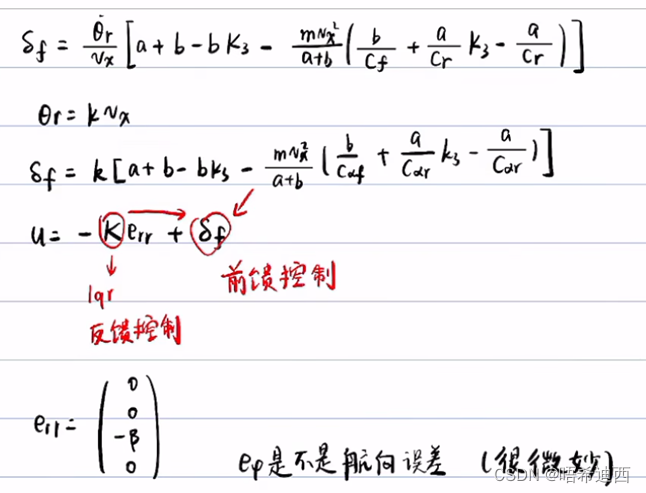 δf = θ̇r/νx [a + b - bK₃ - mνx²/(a+b) (b/Cf + a/Cr K₃ - a/Cr)]
θr = kνx
δf = k[a + b - bk₃ - mνx²/(a+b) (b/Cαf + a/Cαr k₃ - a/Cαr)]
u = -K err + δf
lqr
前馈控制
反馈控制
err = (0 0 -β 0)
eφ是不是航向误差 (很微妙)
CSDN @唔希迪西